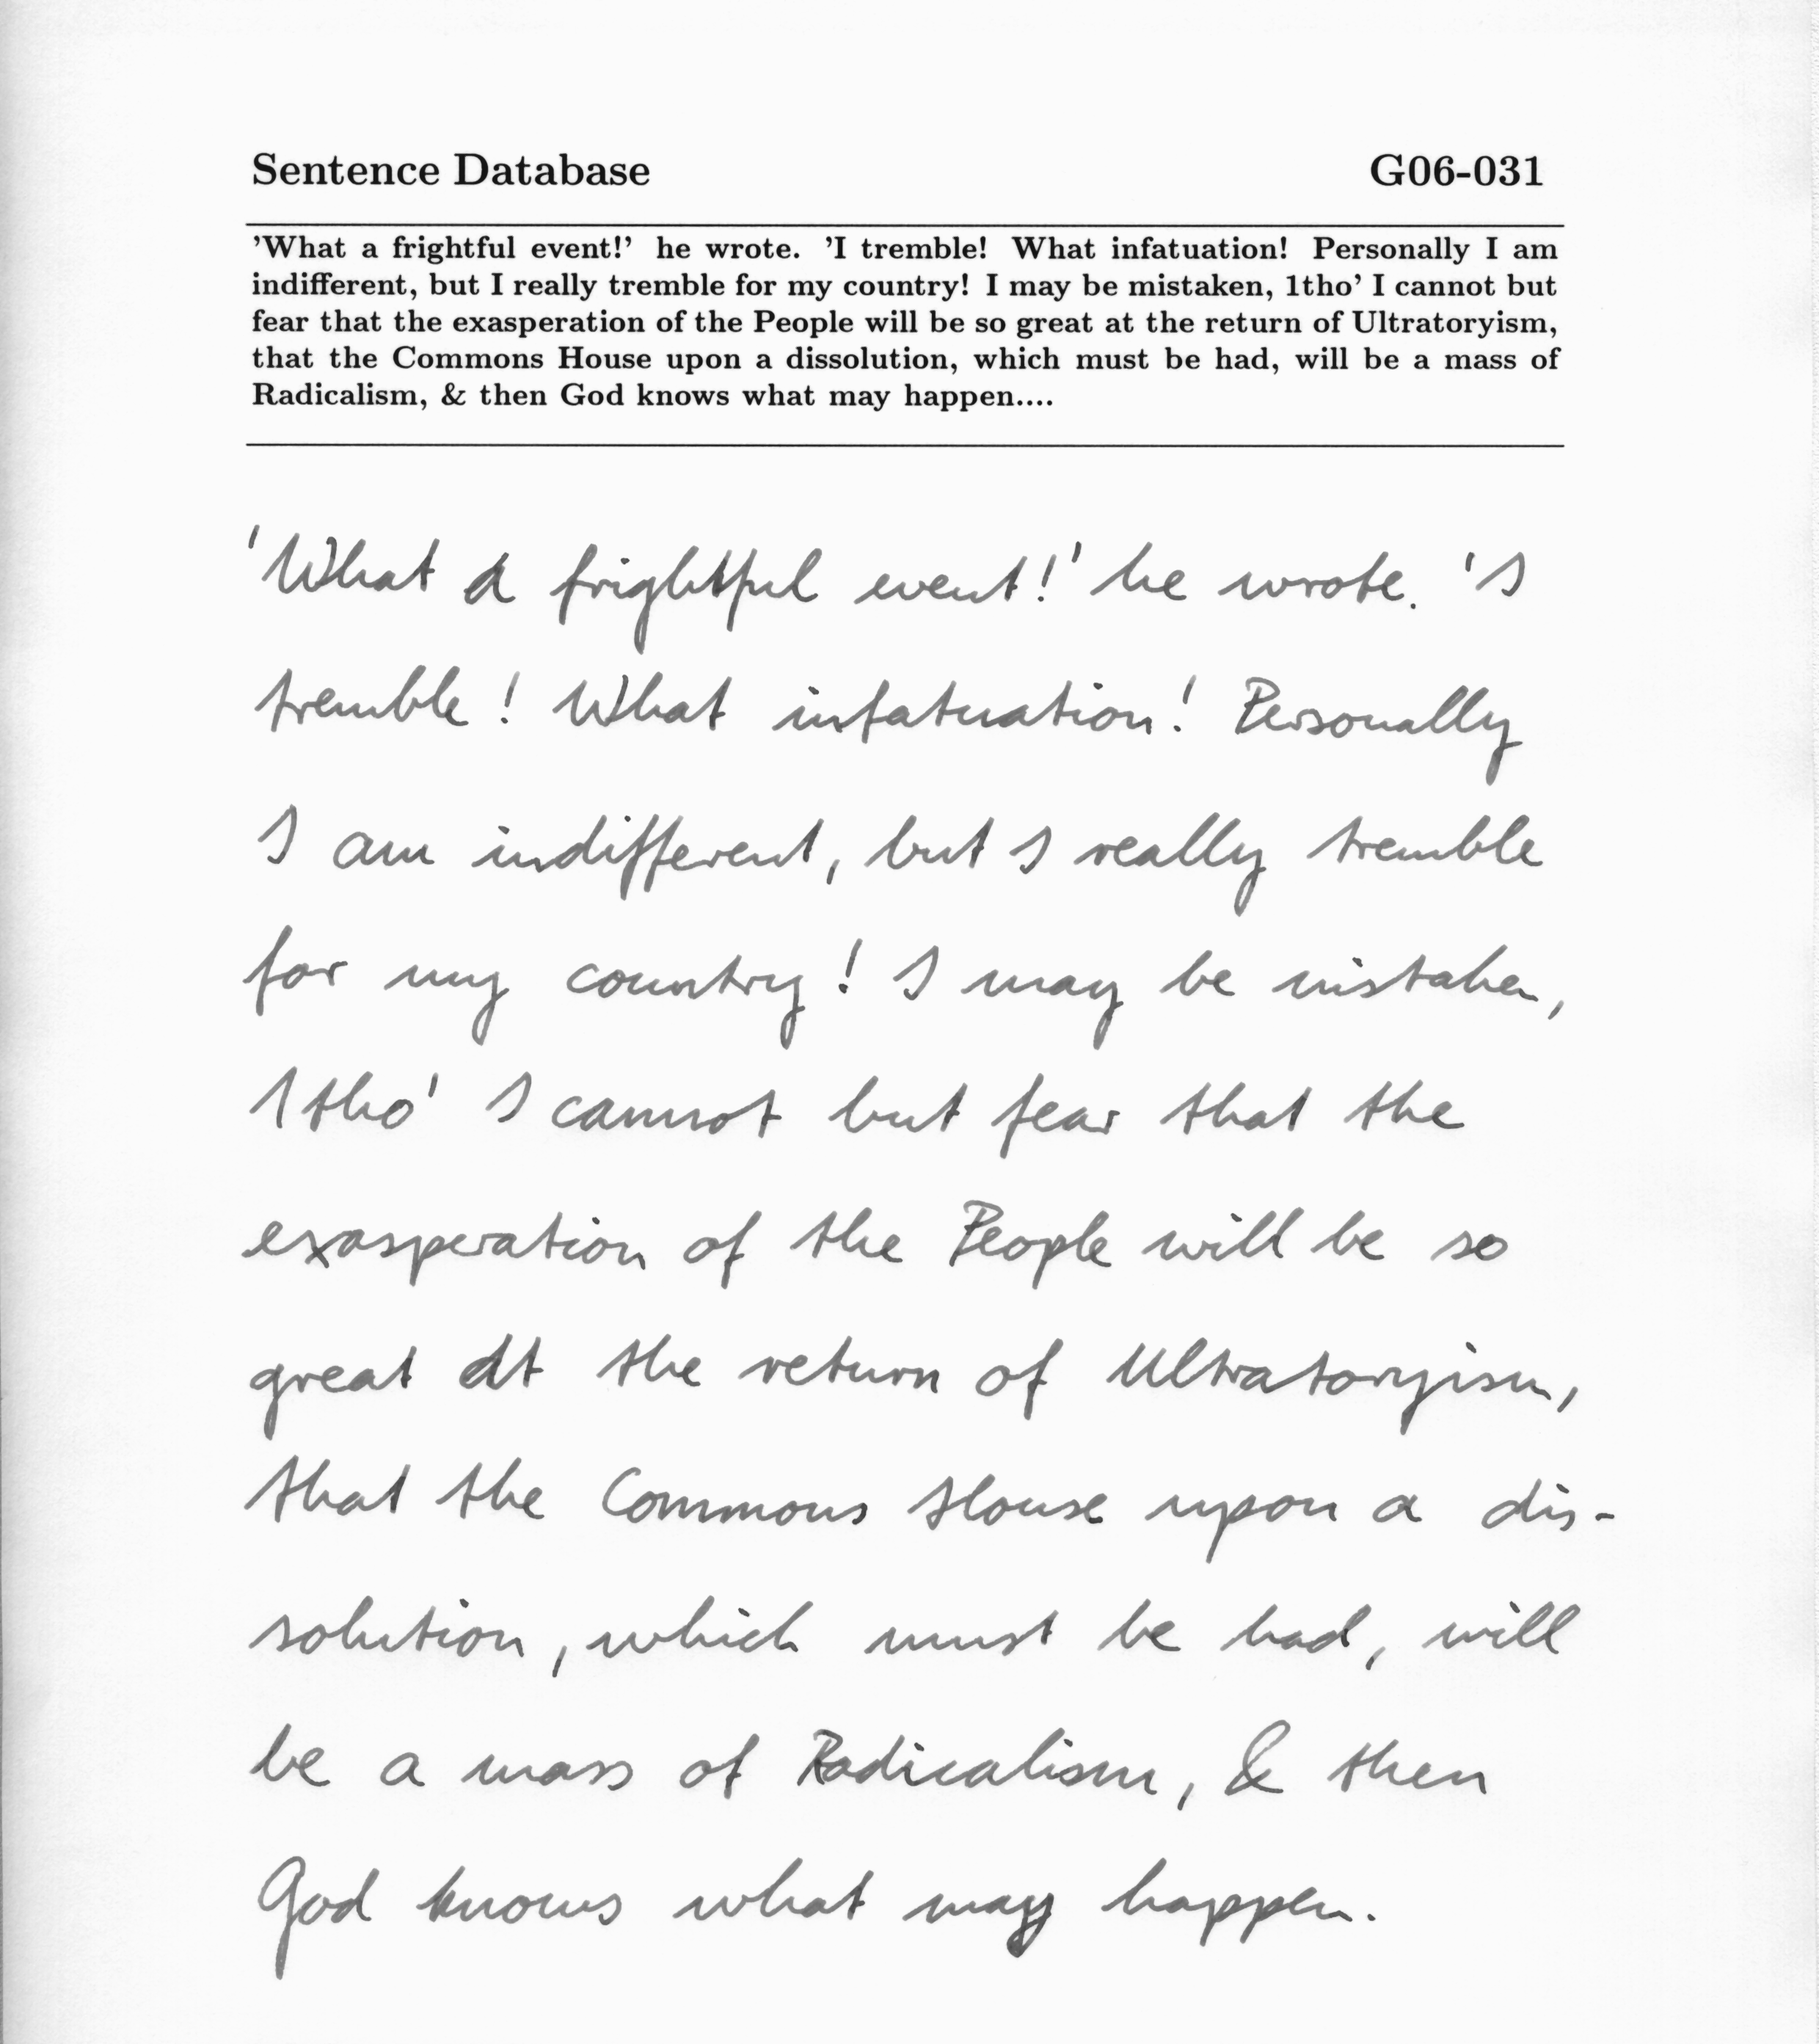 Sentence Database G06-031
'What a frightful event!' he wrote. 'I tremble! What infatuation! Personally I am
indifferent, but I really tremble for my country! I may be mistaken, 1tho' I cannot but
fear that the exasperation of the People will be so great at the return of Ultratoryism,
that the Commons House upon a dissolution, which must be had, will be a mass of
Radicalism, & then God knows what may happen....
'What a frightful event!' he wrote. 'I
tremble! What infatuation! Personally
I am indifferent, but I really tremble
for my country! I may be mistaken,
1tho' I cannot but fear that the
exasperation of the People will be so
great at the return of Ultratoryism,
that the Commons House upon a dis-
solution, which must be had, will
be a mass of Radicalism, & then
God knows what may happen.